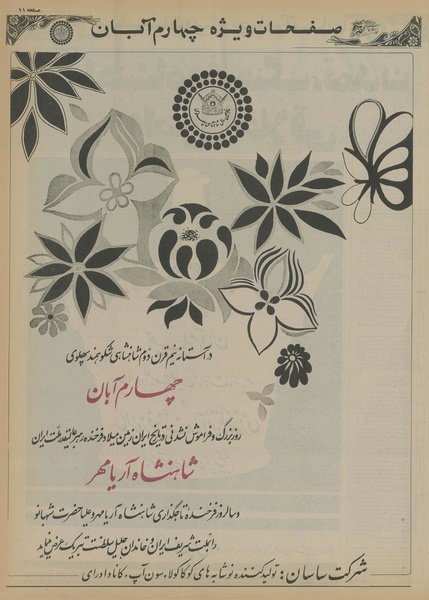 صفحه ۱۱
صفحات ویژه چهارم آبان
در آستانه نیم قرن دوم شاهنشاهی شکوهمند پهلوی
چهارم آبان
روز بزرگ و فراموش نشدنی در تاریخ ایران زمین میلاد فرخنده رهبر عالیقدر ملت ایران
شاهنشاه آریامهر
و سالروز فرخنده تاجگذاری شاهنشاه آریامهر و علیاحضرت شهبانو
را بملت شریف ایران و خاندان جلیل سلطنت تبریک عرض مینماید
شرکت ساسان: تولیدکننده نوشابه‌های کوکاکولا، سون آپ، کانادا درای